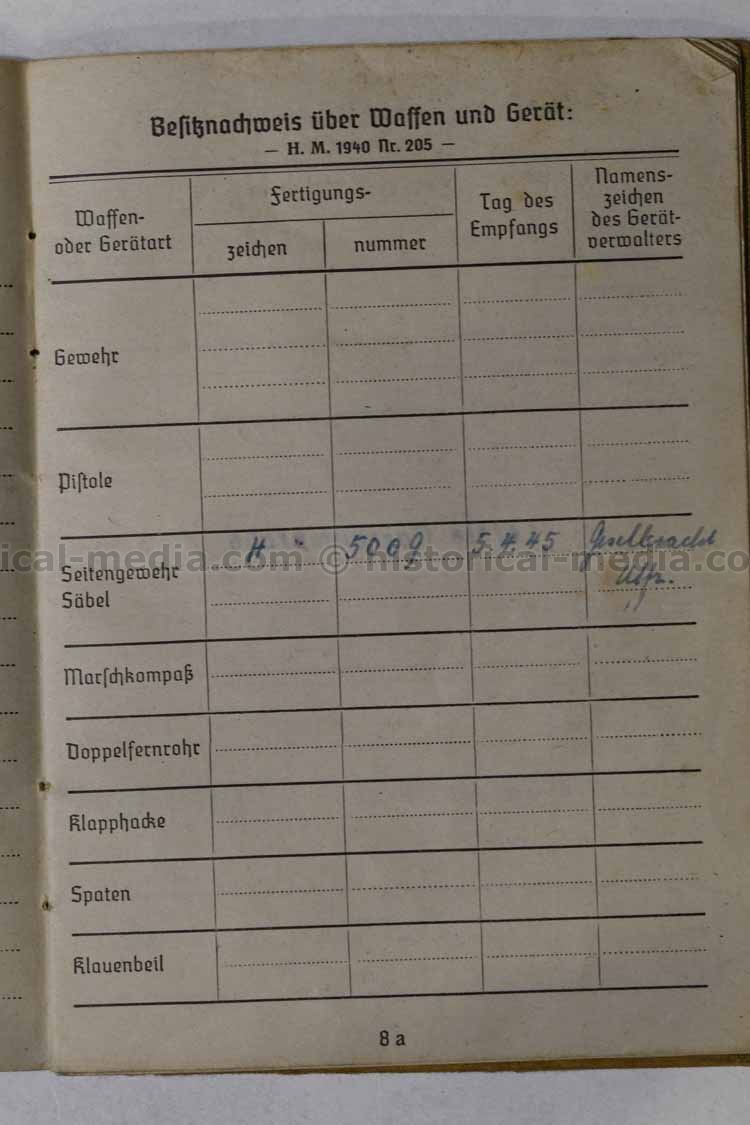 Besitznachweis über Waffen und Gerät:
— H. M. 1940 Nr. 205 —
Waffen-
oder Gerätart
Fertigungs-
zeichen
nummer
Tag des
Empfangs
Namens-
zeichen
des Gerät-
verwalters
Gewehr
Pistole
Seitengewehr
Säbel
H 5009 5.4.45
Uffz.
Marschkompaß
Doppelfernrohr
Klapphacke
Spaten
Klauenbeil
8 a
ical-media.com © historical-media.com ©